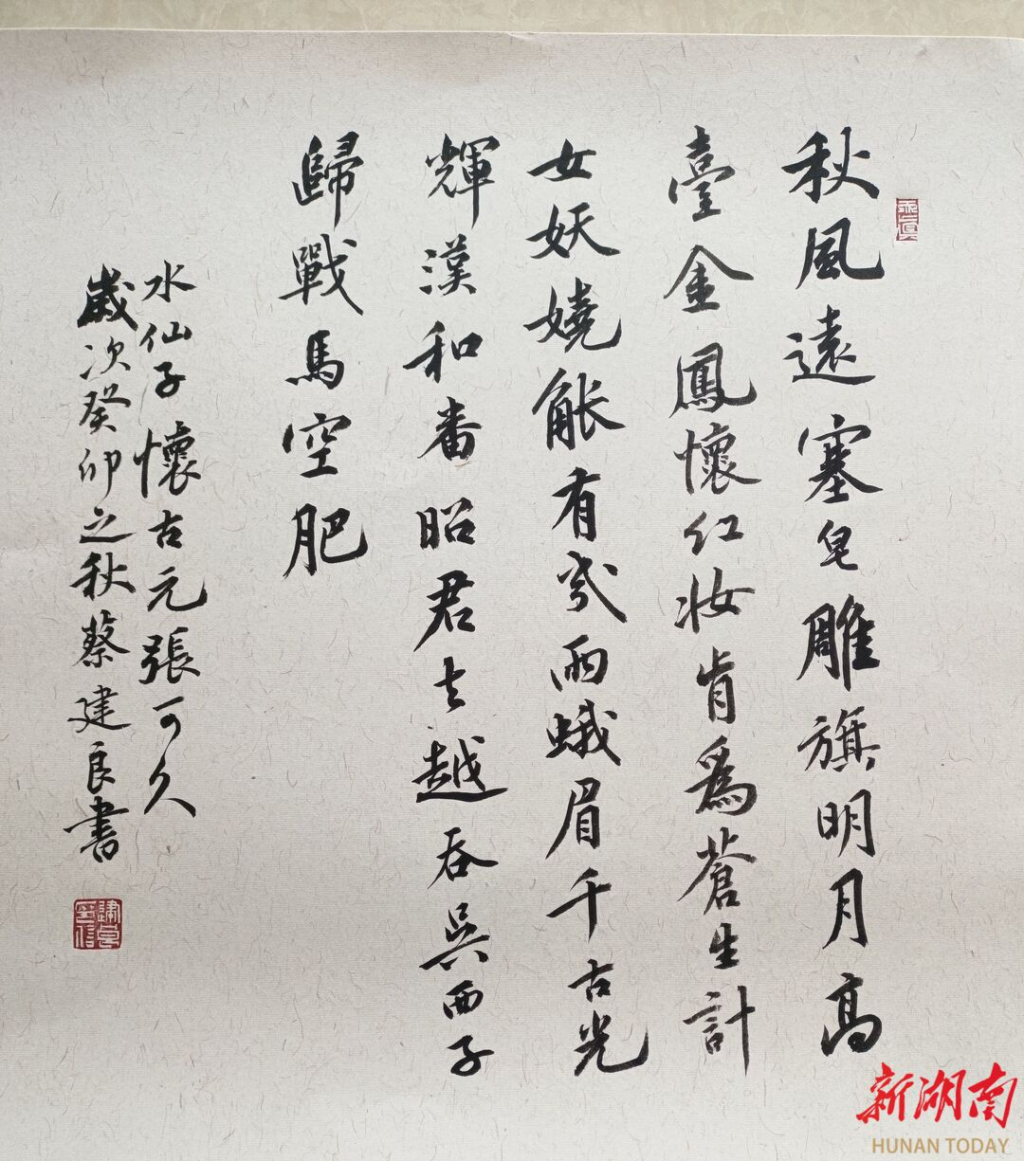 秋風遠塞皂雕旗明月高
臺金鳳懷紅妝肯爲蒼生計
女妖嬈能有幾兩蛾眉千古光
輝漢和番昭君去越吞吳西子
歸戰馬空肥
水仙子懷古元張可久
歲次癸卯之秋蔡建良書
新湖南
HUNAN TODAY